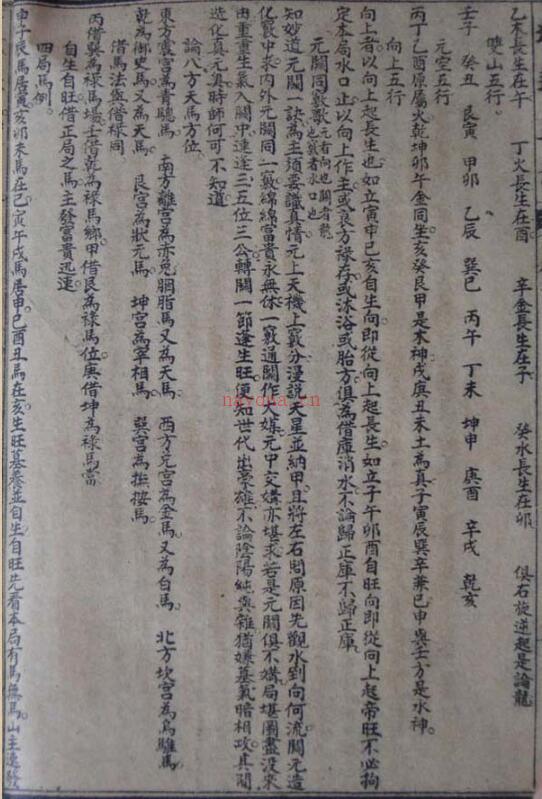 乙木長生在午　丁火長生在酉　辛金長生在子　癸水長生在卯　俱右旋逆起是論龍
雙山五行
壬子　癸丑　艮寅　甲卯　乙辰　巽巳　丙午　丁未　坤申　庚酉　辛戌　乾亥
元空五行
丙丁乙酉原屬火乾坤卯午金同坐亥癸艮甲是木神戌庚丑未土為真子寅辰巽辛兼巳申與壬方是水神
向上五行
向上者以向上起長生也如立寅申巳亥自生向即從向上起長生如立子午卯酉自旺向即從向上起帝旺不必拘
定本局水口止以向上作主或良方祿存或沐浴或胎方俱為借庫消水不論歸正庫不歸正庫
元關同竅歌元者向也關者龍也竅者水口也
知妙道元關一訣為主須要識真情元上天機上竅分漫説天星並納甲且將左右問原因先觀水到向何流關元造
化竅中求內外元關同一竅綿綿富貴永無休一竅通關作大媒元中交媾亦堪求若是元關俱不媾局堪圖盡沒來
由重重生氣入關中連逢三五位三公轉關一節逢生旺便知世代出豪雄不論陰陽純與雜猶嫌墓氣暗相攻其間
造化真元奥時師何可不知道
論八方天馬方位
東方震宮為青驄馬　南方離宮為赤兔胭脂馬又為天馬　西方兌宮為金馬又為白馬　北方坎宮為烏騅馬
乾為御史馬又為天馬　艮宮為狀元馬　坤宮為宰相馬　巽宮為撫按馬
借馬法與借祿同
丙借巽為祿馬場壬借乾為祿馬鄉甲借艮為祿馬位庚借坤為祿馬當
自生自旺借正局之馬主發富貴迅速
四局馬例
申子辰馬居寅亥卯未馬在巳寅午戌馬居申巳酉丑馬在亥生旺墓養並自生自旺先看本局有馬無馬山主速發
nayona.cn